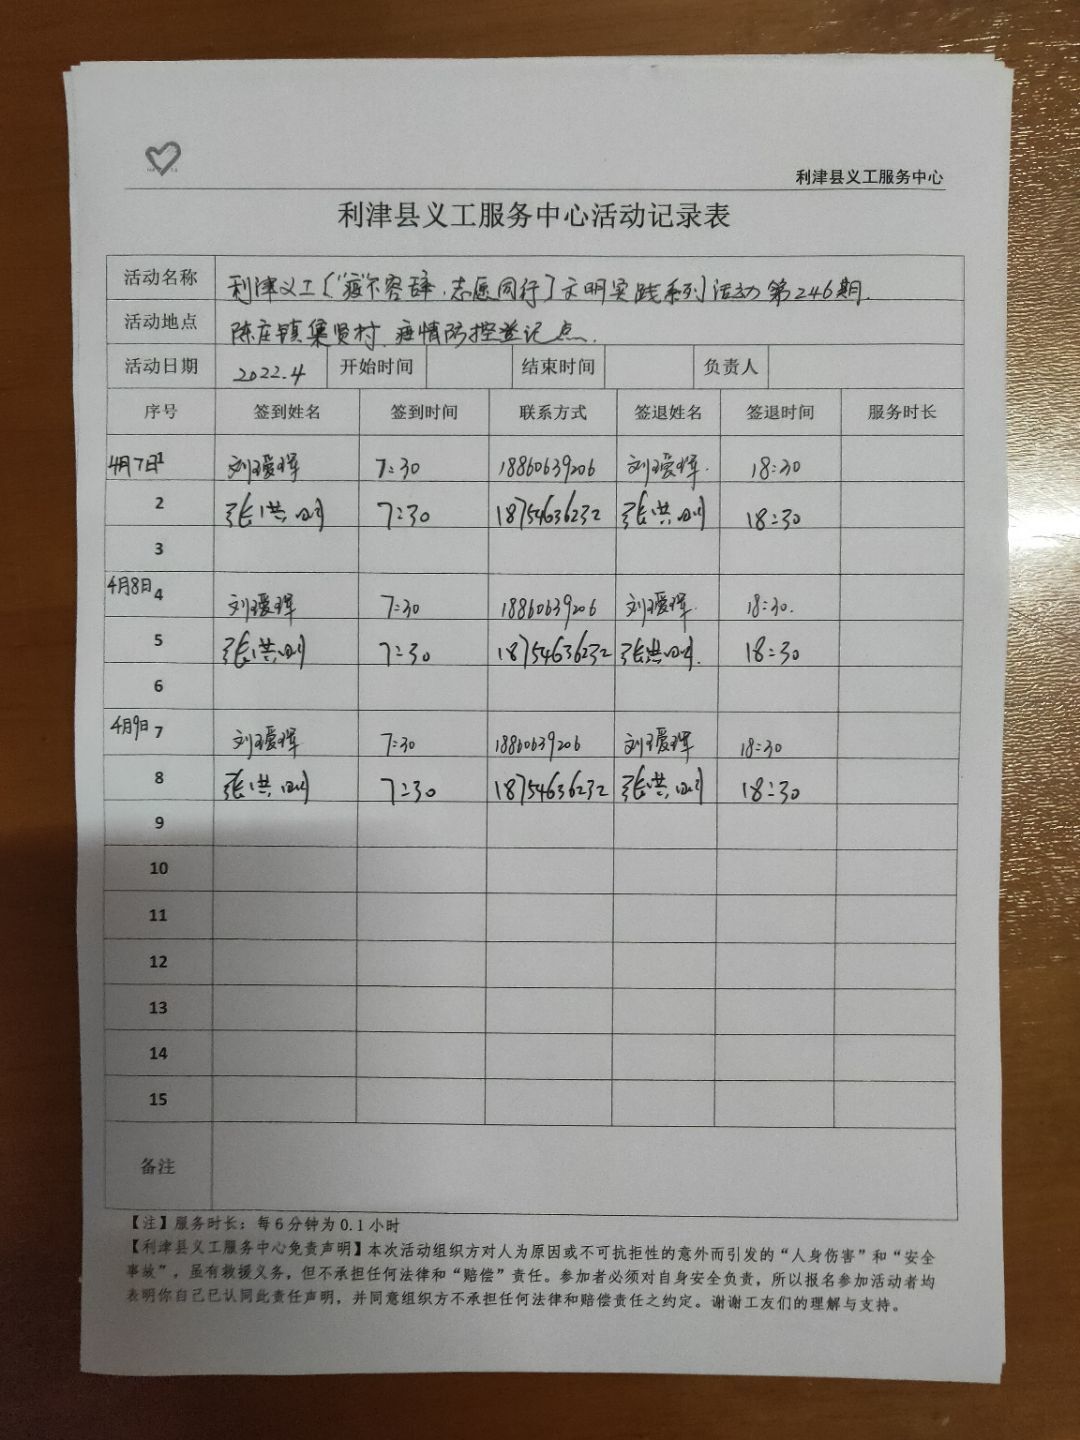 利津县义工服务中心
利津县义工服务中心活动记录表
活动名称 利津义工〔“疫”不容辞·志愿同行〕文明实践系列活动第246期.
活动地点 陈庄镇集贤村疫情防控登记点.
活动日期 2022.4 开始时间 结束时间 负责人
序号 签到姓名 签到时间 联系方式 签退姓名 签退时间 服务时长
4月7日1 刘瑷珲 7:30 18860639206 刘瑷珲. 18:30
2 张洪刚 7:30 18754636232 张洪刚 18:30
3
4月8日4 刘瑷珲 7:30 18860639206 刘瑷珲. 18:30.
5 张洪刚 7:30 18754636232 张洪刚. 18:30
6
4月9日7 刘瑷珲 7:30 18860639206 刘瑷珲 18:30
8 张洪刚 7:30 18754636232 张洪刚 18:30
9
10
11
12
13
14
15
备注
【注】服务时长：每6分钟为0.1小时
【利津县义工服务中心免责声明】本次活动组织方对人为原因或不可抗拒性的意外而引发的“人身伤害”和“安全
事故”，虽有救援义务，但不承担任何法律和“赔偿”责任。参加者必须对自身安全负责，所以报名参加活动者均
表明你自己已认同此责任声明，并同意组织方不承担任何法律和赔偿责任之约定。谢谢工友们的理解与支持。